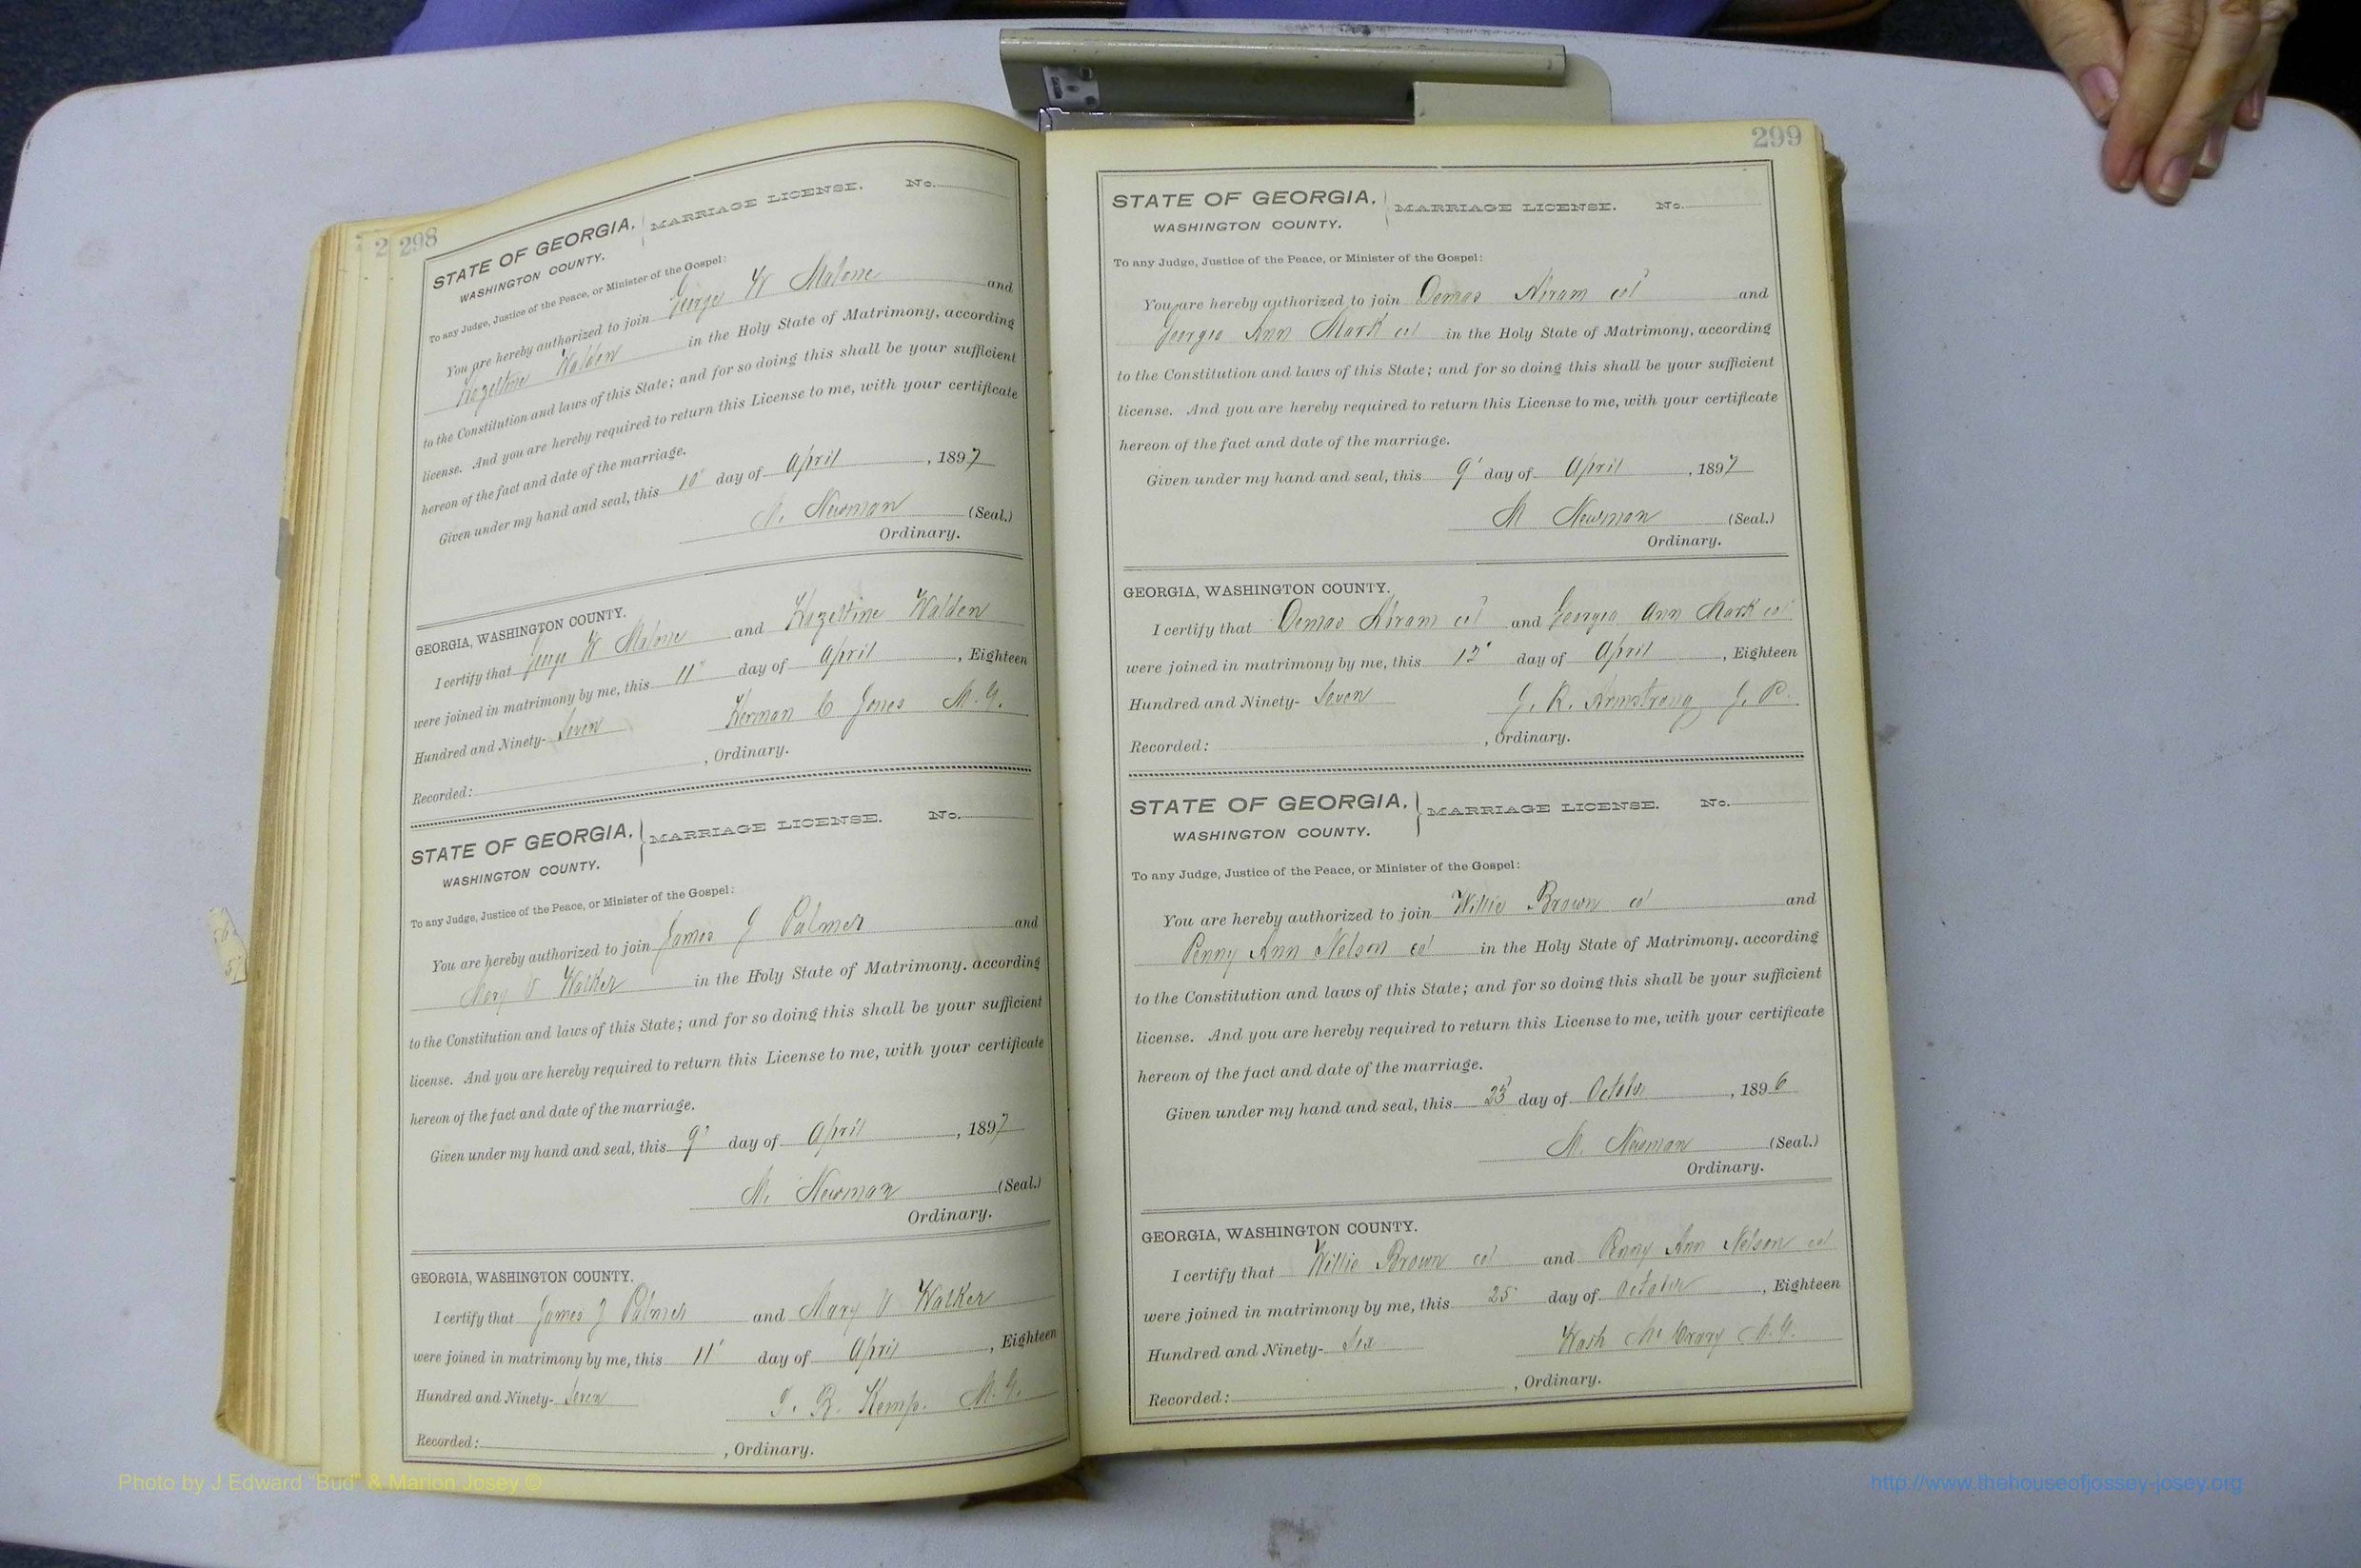 298
STATE OF GEORGIA, MARRIAGE LICENSE. No.
WASHINGTON COUNTY.
To any Judge, Justice of the Peace, or Minister of the Gospel:
You are hereby authorized to join George W Malone and
Hazeltine Walden in the Holy State of Matrimony, according
to the Constitution and laws of this State; and for so doing this shall be your sufficient
license. And you are hereby required to return this License to me, with your certificate
hereon of the fact and date of the marriage.
Given under my hand and seal, this 10" day of April, 1897
M. Newman (Seal.)
Ordinary.
GEORGIA, WASHINGTON COUNTY.
I certify that George W Malone and Hazeltine Walden
were joined in matrimony by me, this 11" day of April, Eighteen
Hundred and Ninety- Seven Herman C Jones M. G.
Recorded: , Ordinary.
STATE OF GEORGIA, MARRIAGE LICENSE. No.
WASHINGTON COUNTY.
To any Judge, Justice of the Peace, or Minister of the Gospel:
You are hereby authorized to join James J Palmer and
Mary V Walker in the Holy State of Matrimony. according
to the Constitution and laws of this State; and for so doing this shall be your sufficient
license. And you are hereby required to return this License to me, with your certificate
hereon of the fact and date of the marriage.
Given under my hand and seal, this 9' day of April, 1897
M. Newman (Seal.)
Ordinary.
GEORGIA, WASHINGTON COUNTY.
I certify that James J Palmer and Mary V Walker
were joined in matrimony by me, this 11' day of April, Eighteen
Hundred and Ninety- Seven T. B. Kemp. M. G.
Recorded: , Ordinary.
299
STATE OF GEORGIA, MARRIAGE LICENSE. No.
WASHINGTON COUNTY.
To any Judge, Justice of the Peace, or Minister of the Gospel:
You are hereby authorized to join Demas Hiram col and
Georgia Ann Mark col in the Holy State of Matrimony, according
to the Constitution and laws of this State; and for so doing this shall be your sufficient
license. And you are hereby required to return this License to me, with your certificate
hereon of the fact and date of the marriage.
Given under my hand and seal, this 9' day of April, 1897
M Newman (Seal.)
Ordinary.
GEORGIA, WASHINGTON COUNTY.
I certify that Demas Hiram col and Georgia Ann Mark col
were joined in matrimony by me, this day of April, Eighteen
Hundred and Ninety- Seven J. R. Armstrong J. P.
Recorded: , Ordinary.
STATE OF GEORGIA, MARRIAGE LICENSE. No.
WASHINGTON COUNTY.
To any Judge, Justice of the Peace, or Minister of the Gospel:
You are hereby authorized to join Willie Brown col and
Penny Ann Nelson col in the Holy State of Matrimony. according
to the Constitution and laws of this State; and for so doing this shall be your sufficient
license. And you are hereby required to return this License to me, with your certificate
hereon of the fact and date of the marriage.
Given under my hand and seal, this 23' day of October, 1896
M. Newman (Seal.)
Ordinary.
GEORGIA, WASHINGTON COUNTY.
I certify that Willie Brown col and Penny Ann Nelson col
were joined in matrimony by me, this 25' day of October, Eighteen
Hundred and Ninety- Six Wash McCrary M. G.
Recorded: , Ordinary.
Photo by J Edward "Bud" & Marion Josey ©
http://www.thehouseofjossey-josey.org